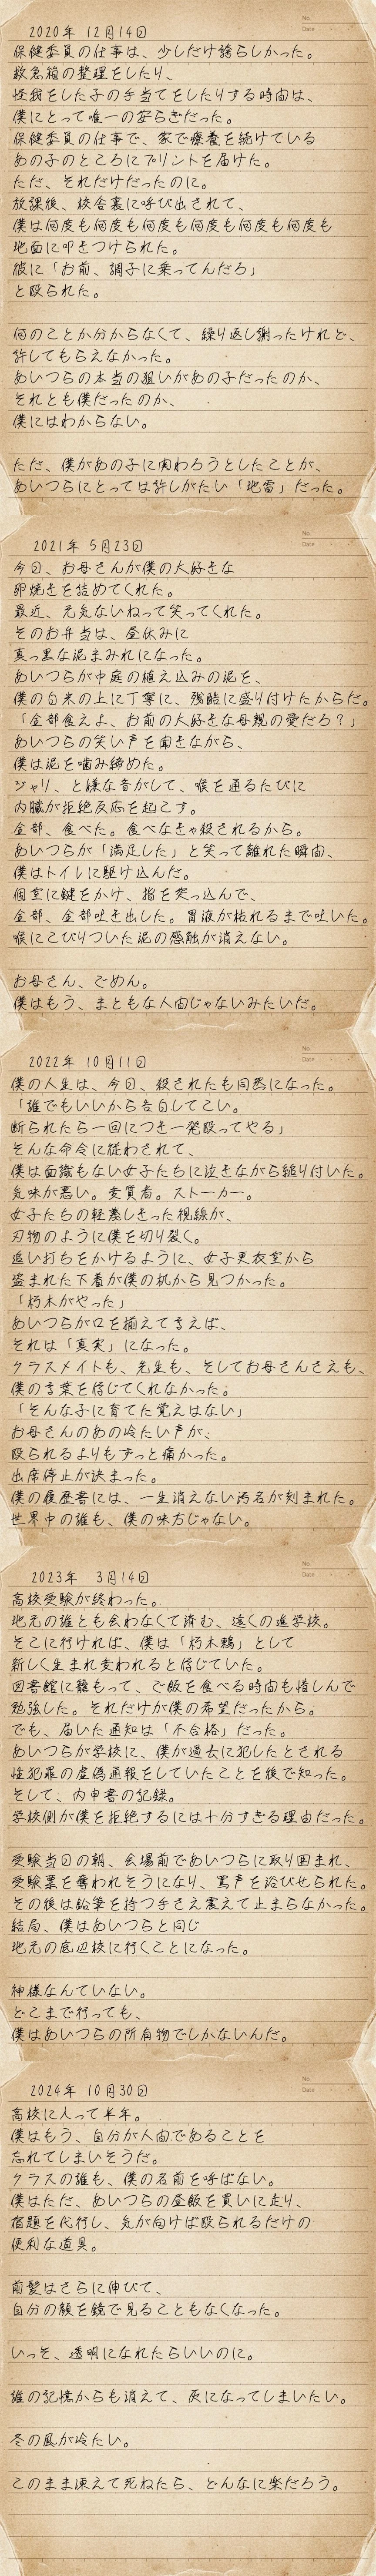 No.
Date
2020年 12月14日
保健委員の仕事は、少しだけ誇らしかった。
救急箱の整理をしたり、
怪我をした子の手当てをしたりする時間は、
僕にとって唯一の安らぎだった。
保健委員の仕事で、家で療養を続けている
あの子のところにプリントを届けた。
ただ、それだけだったのに。
放課後、校舎裏に呼び出されて、
僕は何度も何度も何度も何度も何度も何度も
地面に叩きつけられた。
彼に「お前、調子に乗ってんだろ」
と殴られた。
何のことか分からなくて、繰り返し謝ったけれど、
許してもらえなかった。
あいつらの本当の狙いがあの子だったのか、
それとも僕だったのか、
僕にはわからない。
ただ、僕があの子に関わろうとしたことが、
あいつらにとっては許しがたい「地雷」だった。
No.
Date
2021年 5月23日
今日、お母さんが僕の大好きな
卵焼きを詰めてくれた。
最近、元気ないねって笑ってくれた。
そのお弁当は、昼休みに
真っ黒な泥まみれになった。
あいつらが中庭の植え込みの泥を、
僕の白米の上に丁寧に、残酷に盛り付けたからだ。
「全部食えよ、お前の大好きな母親の愛だろ？」
あいつらの笑い声を聞きながら、
僕は泥を噛み締めた。
ジャリ、と嫌な音がして、喉を通るたびに
内臓が拒絶反応を起こす。
全部、食べた。食べなきゃ殺されるから。
あいつらが「満足した」と笑って離れた瞬間、
僕はトイレに駆け込んだ。
個室に鍵をかけ、指を突っ込んで、
全部、全部吐き出した。胃液が枯れるまで吐いた。
喉にこびりついた泥の感触が消えない。
お母さん、ごめん。
僕はもう、まともな人間じゃないみたいだ。
No.
Date
2022年 10月11日
僕の人生は、今日、殺されたも同然になった。
「誰でもいいから告白してこい。
断られたら一回につき一発殴ってやる」
そんな命令に従わされて、
僕は面識もない女子たちに泣きながら縋り付いた。
気味が悪い。変質者。ストーカー。
女子たちの軽蔑しきった視線が、
刃物のように僕を切り裂く。
追い打ちをかけるように、女子更衣室から
盗まれた下着が僕の机から見つかった。
「朽木がやった」
あいつらが口を揃えて言えば、
それは「真実」になった。
クラスメイトも、先生も、そしてお母さんさえも、
僕の言葉を信じてくれなかった。
「そんな子に育てた覚えはない」
お母さんのあの冷たい声が、
殴られるよりもずっと痛かった。
出席停止が決まった。
僕の履歴書には、一生消えない汚名が刻まれた。
世界中の誰も、僕の味方じゃない。
No.
Date
2023年 3月14日
高校受験が終わった。
地元の誰とも会わなくて済む、遠くの進学校。
そこに行ければ、僕は「朽木鵺」として
新しく生まれ変われると信じていた。
図書館に籠もって、ご飯を食べる時間も惜しんで
勉強した。それだけが僕の希望だったから。
でも、届いた通知は「不合格」だった。
あいつらが学校に、僕が過去に犯したとされる
性犯罪の虚偽通報をしていたことを後で知った。
そして、内申書の記録。
学校側が僕を拒絶するには十分すぎる理由だった。
受験当日の朝、会場前であいつらに取り囲まれ、
受験票を奪われそうになり、罵声を浴びせられた。
その後は鉛筆を持つ手さえ震えて止まらなかった。
結局、僕はあいつらと同じ
地元の底辺校に行くことになった。
神様なんていない。
どこまで行っても、
僕はあいつらの所有物でしかないんだ。
No.
Date
2024年 10月30日
高校に入って半年。
僕はもう、自分が人間であることを
忘れてしまいそうだ。
クラスの誰も、僕の名前を呼ばない。
僕はただ、あいつらの昼飯を買いに走り、
宿題を代行し、気が向けば殴られるだけの
便利な道具。
前髪はさらに伸びて、
自分の顔を鏡で見ることもなくなった。
いっそ、透明になれたらいいのに。
誰の記憶からも消えて、灰になってしまいたい。
冬の風が冷たい。
このまま凍えて死ねたら、どんなに楽だろう。